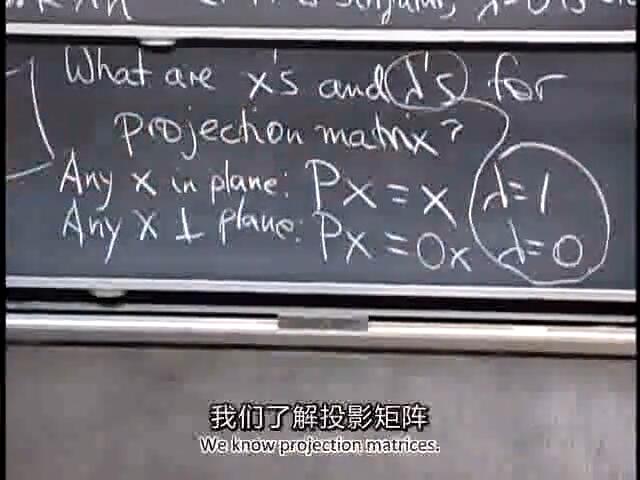 singular, λ=0 is
What are x's and λ's for
projection matrix?
Any x in plane: Px = x λ=1
Any x ⊥ plane: Px = 0x λ=0
我们了解投影矩阵
We know projection matrices.